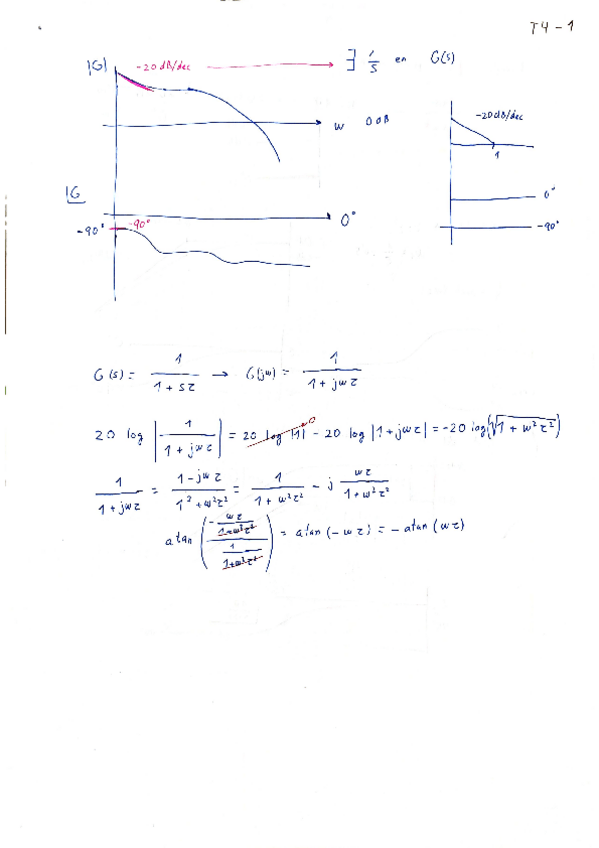 T4-1
|G| -20 dB/dec → ∃ 1/s en G(s)
w 0 dB
-20 dB/dec
1
0°
-90°
∠G
-90° -90° 0°
G(s) = 1/(1 + sτ) → G(jw) = 1/(1 + jwτ)
20 log |1/(1 + jwτ)| = 20 log |1| 0 - 20 log |1 + jwτ| = -20 log(√(1 + w²τ²))
1/(1 + jwτ) = (1 - jwτ)/(1² + w²τ²) = 1/(1 + w²τ²) - j wτ/(1 + w²τ²)
atan ((-wτ/(1+w²τ²))/(1/(1+w²τ²))) = atan (-wτ) = - atan (wτ)